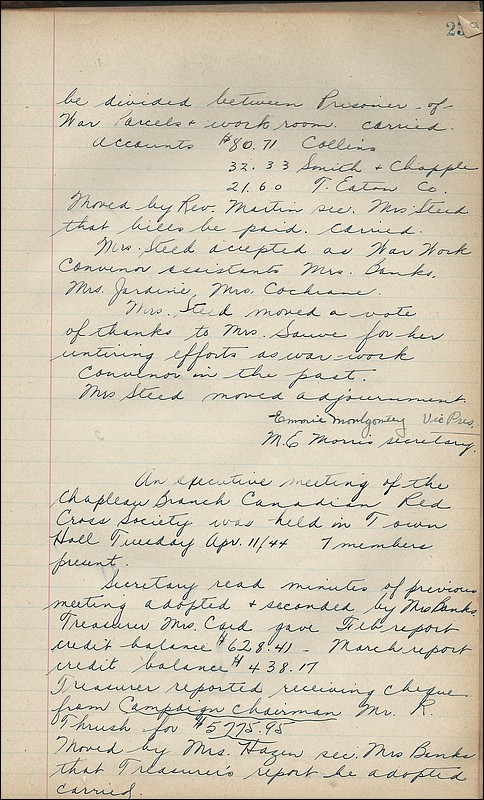 be divided between Prisoner-of-
War Parcels & work room. carried.
accounts $80.71 Collins
32.33 Smith & Chapple
21.60 T. Eaton Co.
Moved by Rev. Martin sec. Mrs. Steed
that bills be paid. carried.
Mrs. Steed accepted as War Work
Convenor assistants Mrs. Banks,
Mrs. Jardine, Mrs. Cochrane.
Mrs. Steed moved a vote
of thanks to Mrs. Sauve for her
untiring efforts as war-work
convenor in the past.
Mrs Steed moved adjournment.
Montgomery Vice Pres.
M.E. Morris secretary.
An executive meeting of the
Chapleau Branch Canadian Red
Cross Society was held in Town
Hall Tuesday Apr. 11/44 7 members
present.
Secretary read minutes of previous
meeting adopted & seconded by Mrs Banks
Treasurer Mrs. Card gave Feb report
credit balance $628.41 - March report
credit balance $438.17
Treasurer reported receiving cheque
from Campaign Chairman Mr. R.
Thrush for $5775.95
Moved by Mrs. Hazen sec. Mrs Banks
that Treasurer's report be adopted
carried.